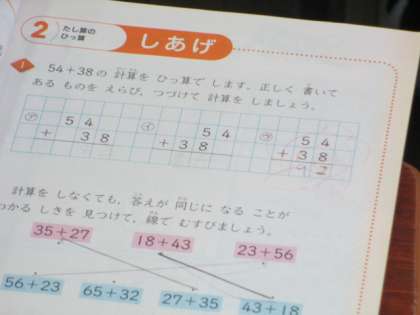 2 たし算の ひっ算 しあげ
1 54+38の 計算を ひっ算で します。正しく 書いて
ある ものを えらび、つづけて 計算を しましょう。
㋐ 54
+ 38
㋑ 54
+38
㋒ 54
+38
92
計算を しなくても、答えが 同じに なる ことが
わかる しきを 見つけて、線で むすびましょう。
35+27 18+43 23+56
56+23 65+32 27+35 43+18